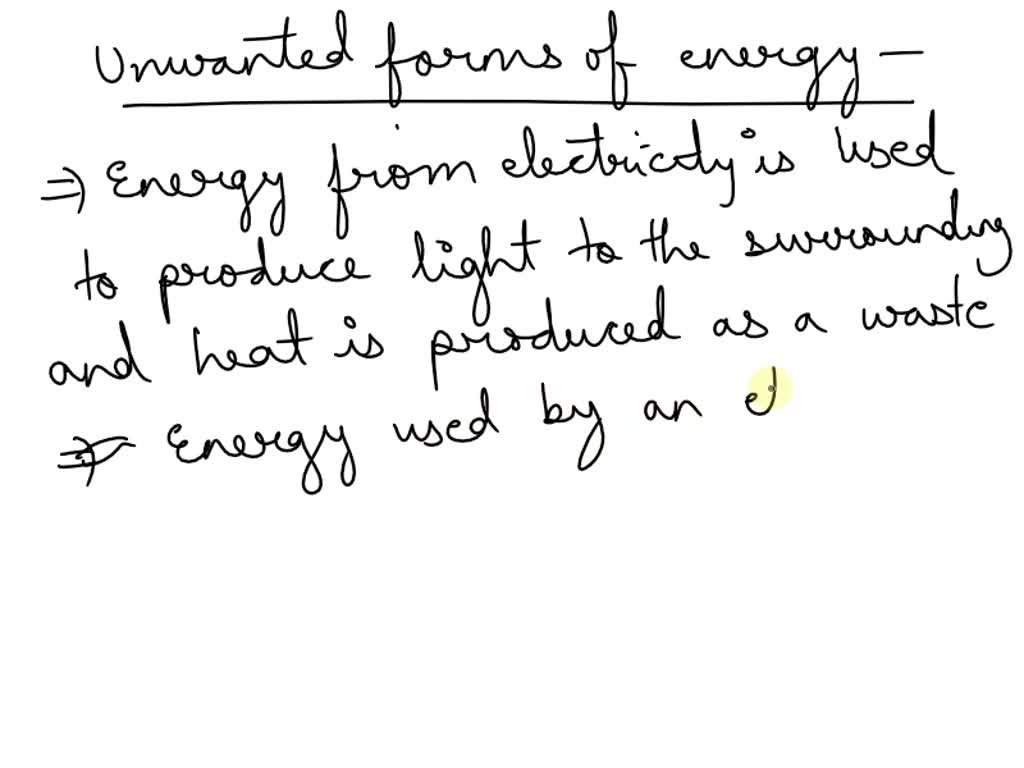 Unwanted forms of energy –
⇒ Energy from electricity is used
to produce light to the surrounding
and heat is produced as a waste
⇒ Energy used by an